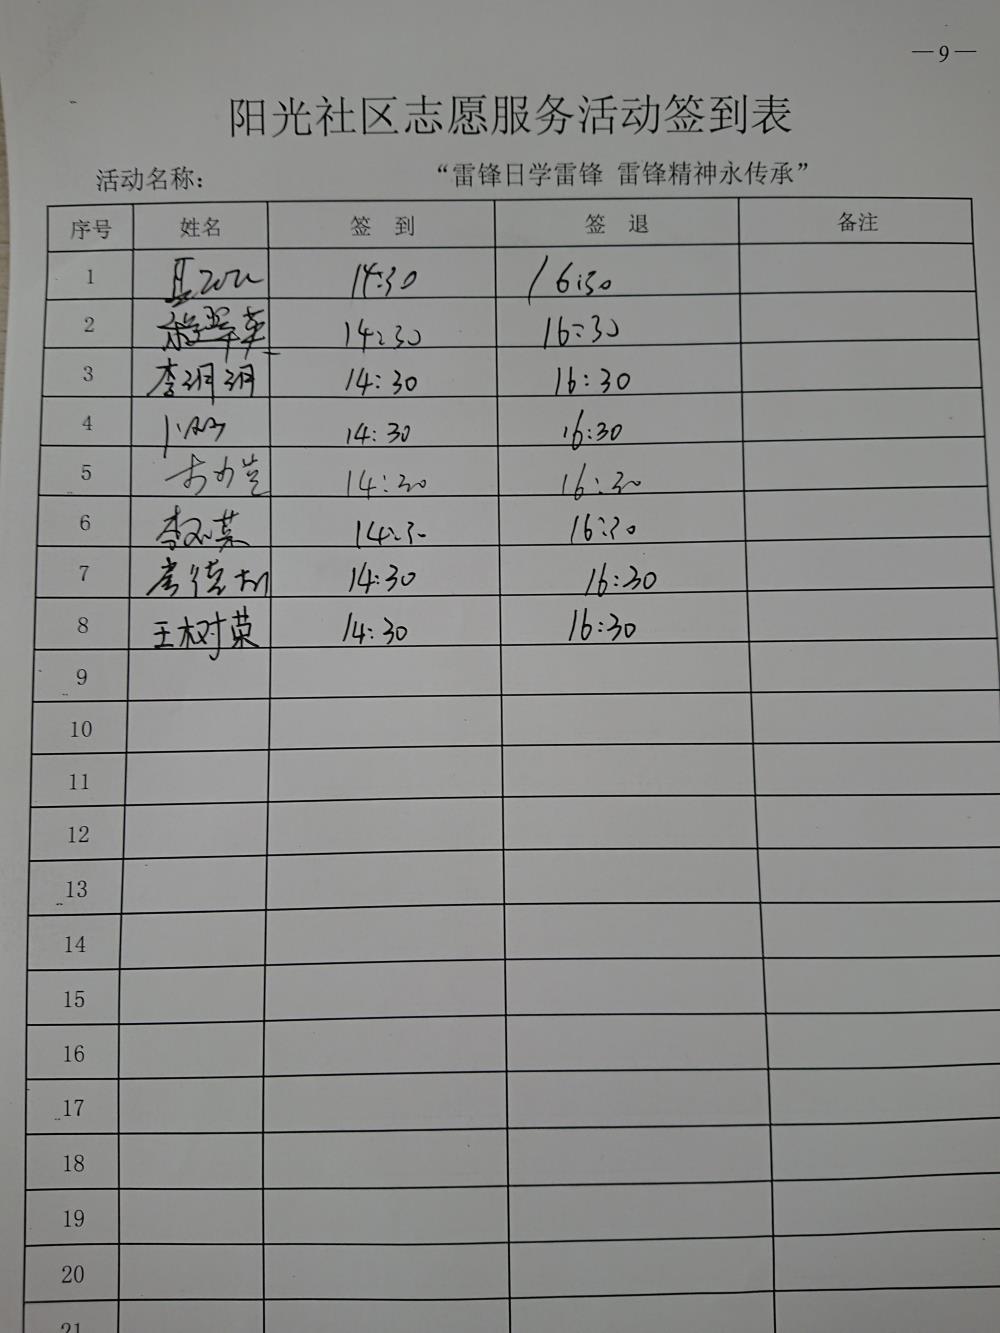 —9—
阳光社区志愿服务活动签到表
活动名称： “雷锋日学雷锋 雷锋精神永传承”
序号 姓名 签 到 签 退 备注
1 14:30 16:30
2 14:30 16:30
3 李玥玥 14:30 16:30
4 14:30 16:30
5 14:30 16:30
6 14:30 16:30
7 14:30 16:30
8 王树荣 14:30 16:30
9
10
11
12
13
14
15
16
17
18
19
20
21